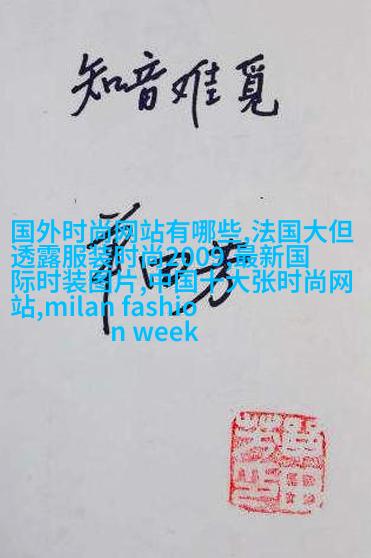 知音难觅
单田芳
国外时尚网站有哪些,法国大但
透露服装时尚2009,最新国
际时装图片,中国十大张时尚网
站,milan fashio
n week